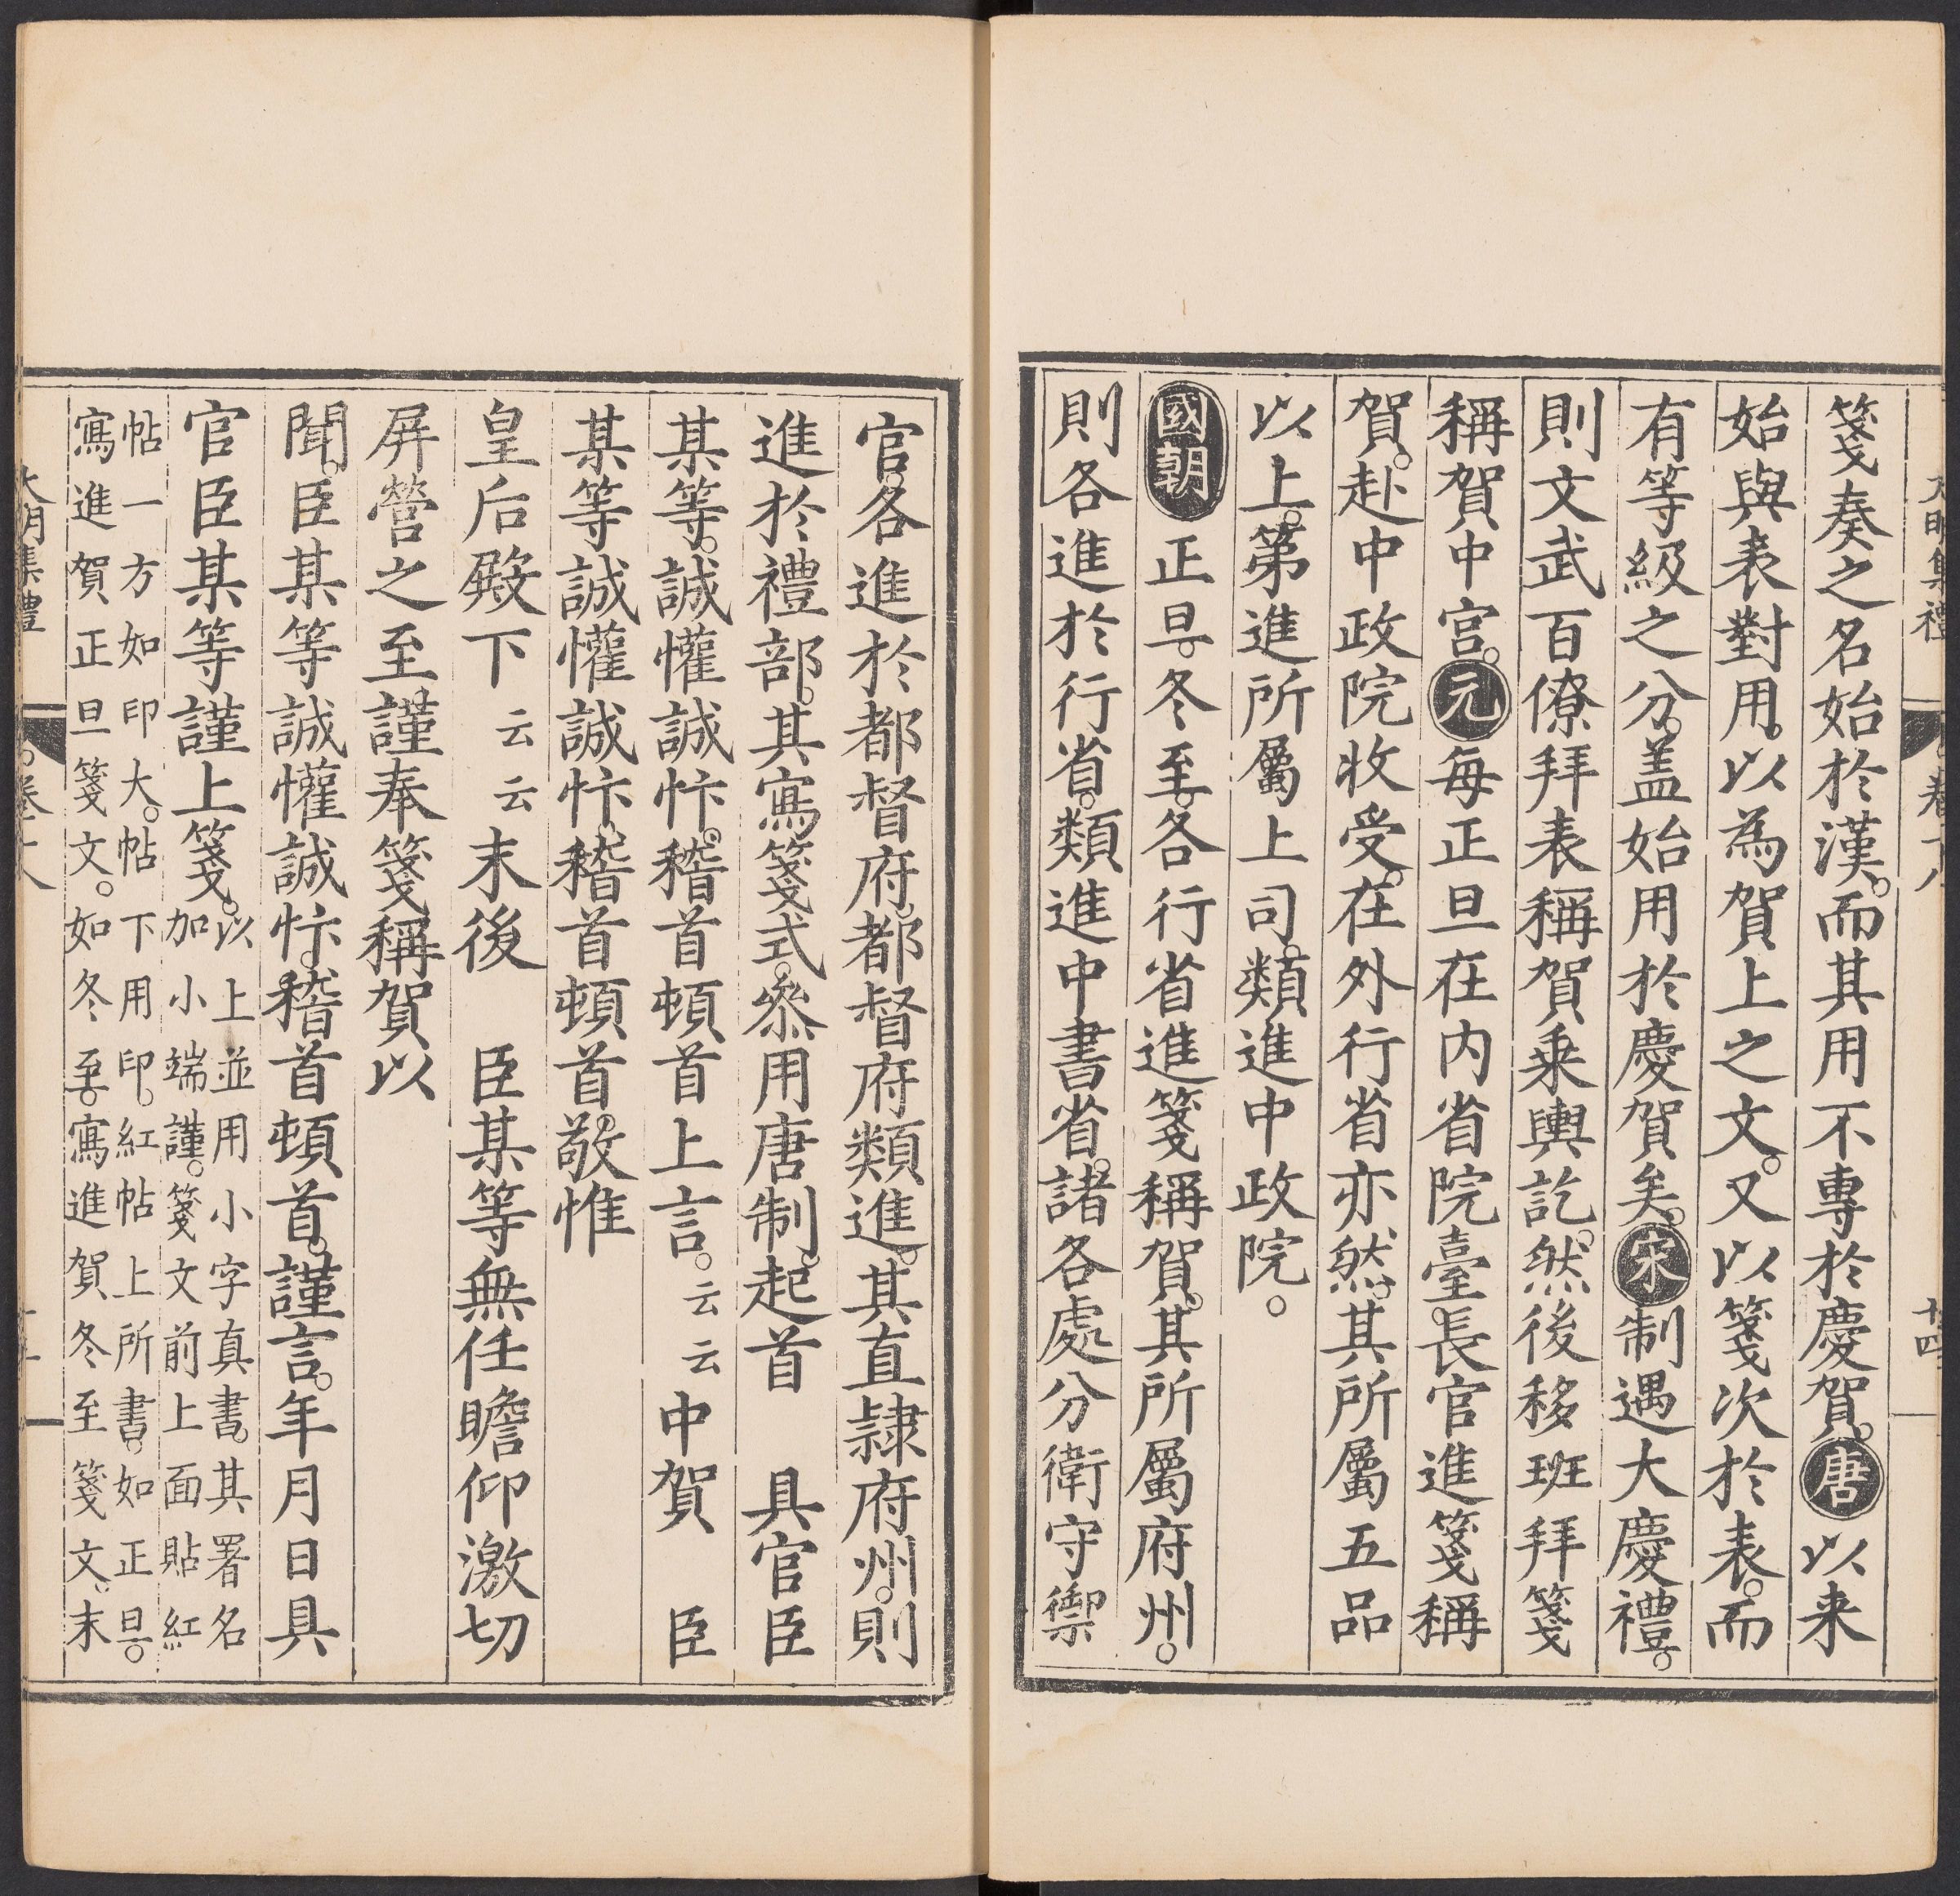 箋奏之名始於漢。而其用不專於慶賀。唐以来
始與表對用。以為賀上之文。又以箋次於表。而
有等級之分。盖始用於慶賀矣。宋制遇大慶禮。
則文武百僚拜表稱賀乗輿訖。然後移班拜箋
稱賀中宮。元每正旦在内省院臺。長官進箋稱
賀。赴中政院收受。在外行省亦然。其所屬五品
以上。第進所屬上司。類進中政院。
國朝正旦。冬至。各行省進箋稱賀。其所屬府州。
則各進於行省。類進中書省。諸各處分衛守禦
官。各進於都督府。都督府類進。其直隷府州。則
進於禮部。其寫箋式。叅用唐制。起首 具官臣
某等。誠懽誠忭。稽首頓首上言。云云中賀 臣
某等誠懽誠忭。稽首頓首。敬惟
皇后殿下 云云末後 臣某等無任瞻仰激切
屏營之至。謹奉箋稱賀以
聞。臣某等誠懽誠忭。稽首頓首。謹言。年月日具
官臣某等謹上箋。以上並用小字真書。其署名
加小端謹。箋文前上面貼紅
帖一方如印大。帖下用印。紅帖上所書。如正旦。
寫進賀正旦箋文。如冬至。寫進賀冬至箋文。末
大明集禮 卷十八 十四
大明集禮 卷十八